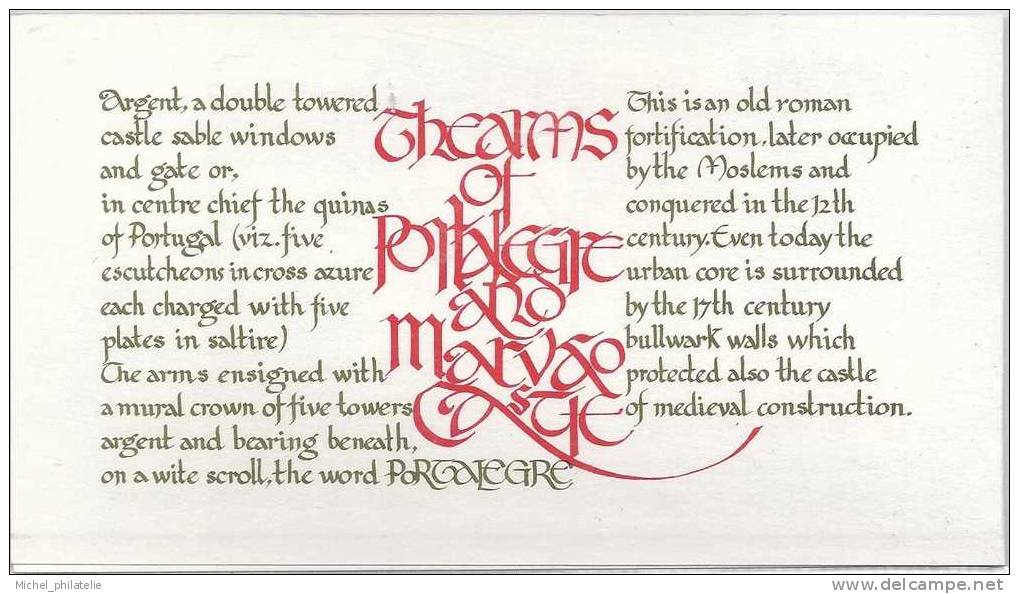 Argent, a double towered
castle sable windows
and gate or,
in centre chief the quinas
of Portugal (viz. five
escutcheons in cross azure
each charged with five
plates in saltire)
The arms ensigned with
a mural crown of five towers
argent and bearing beneath,
on a wite scroll, the word PORTALEGRE
The arms
of
Portalegre
and
Marvao
Castle
This is an old roman
fortification, later occupied
by the Moslems and
conquered in the 12th
century. Even today the
urban core is surrounded
by the 17th century
bullwark walls which
protected also the castle
of medieval construction.
Michel_philatelie
www.delcampe.net